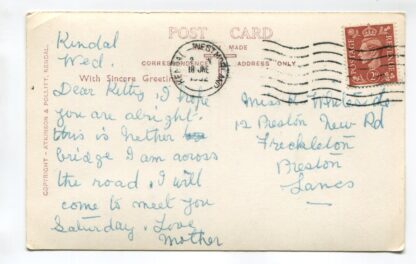 POST CARD
MADE
CORRESPONDENCE
ADDRESS ONLY
With Sincere Greetings
COPYRIGHT - ATKINSON & POLLITT, KENDAL
KENDAL WESTMORLAND
18 JNE
1952
POSTAGE
Kendal
Wed.
Dear Kitty, I hope
you are alright.
this is Nether
bridge I am across
the road. I will
come to meet you
Saturday. Love
Mother
Miss K
12 Preston New Rd
Freckleton
Preston
Lancs